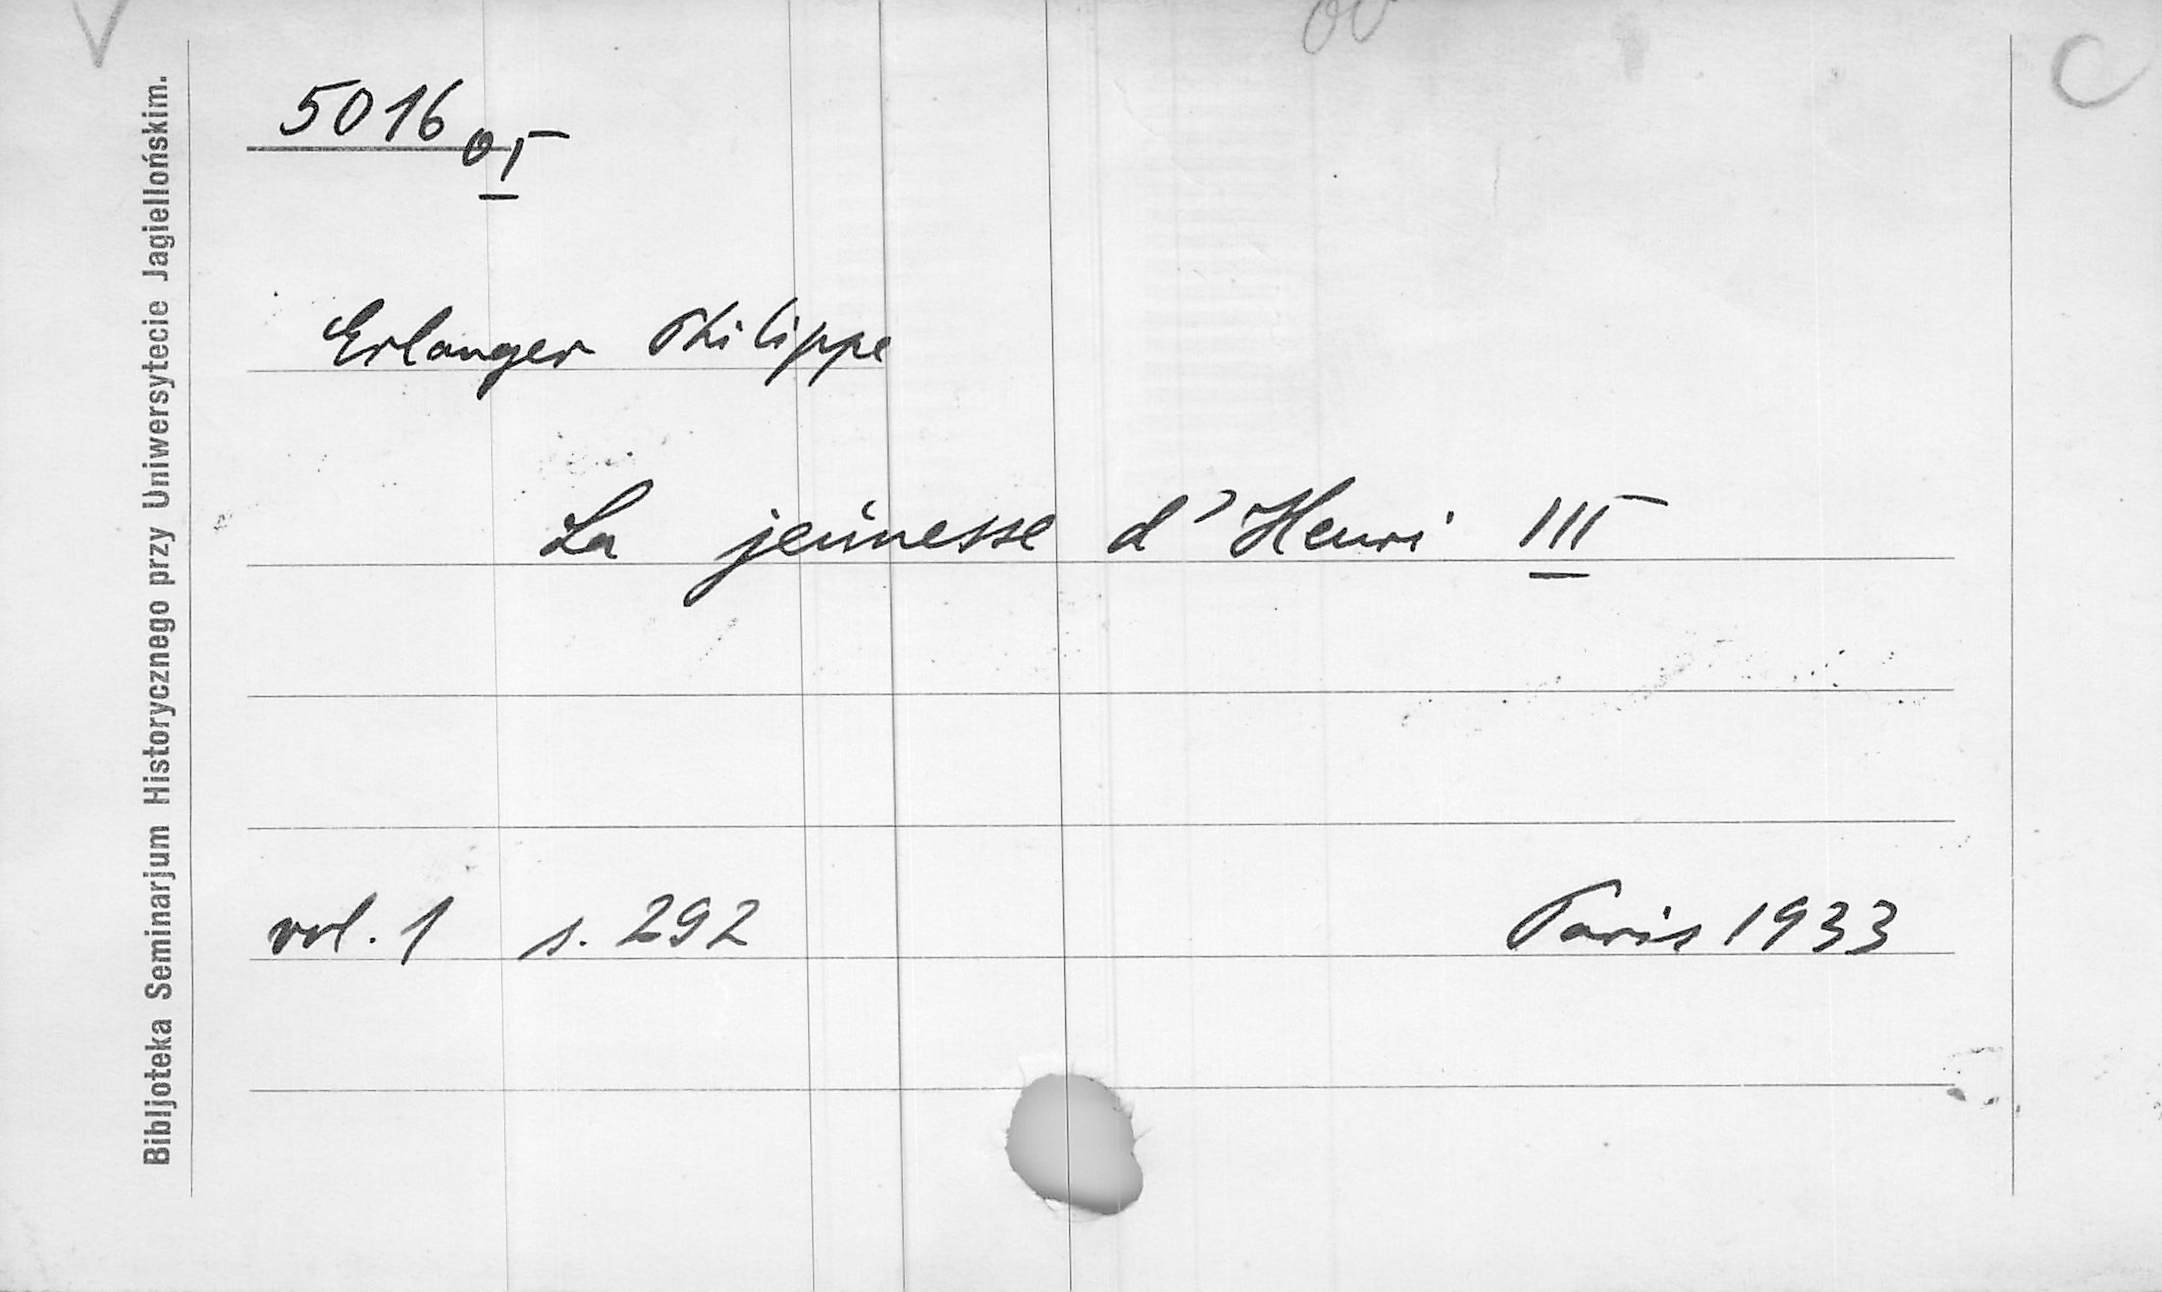 5016 o I
Erlanger Philippe
La jeunesse d'Henri III
vol. 1 s. 292 Paris 1933
Bibljoteka Seminarjum Historycznego przy Uniwersytecie Jagiellońskim.
C